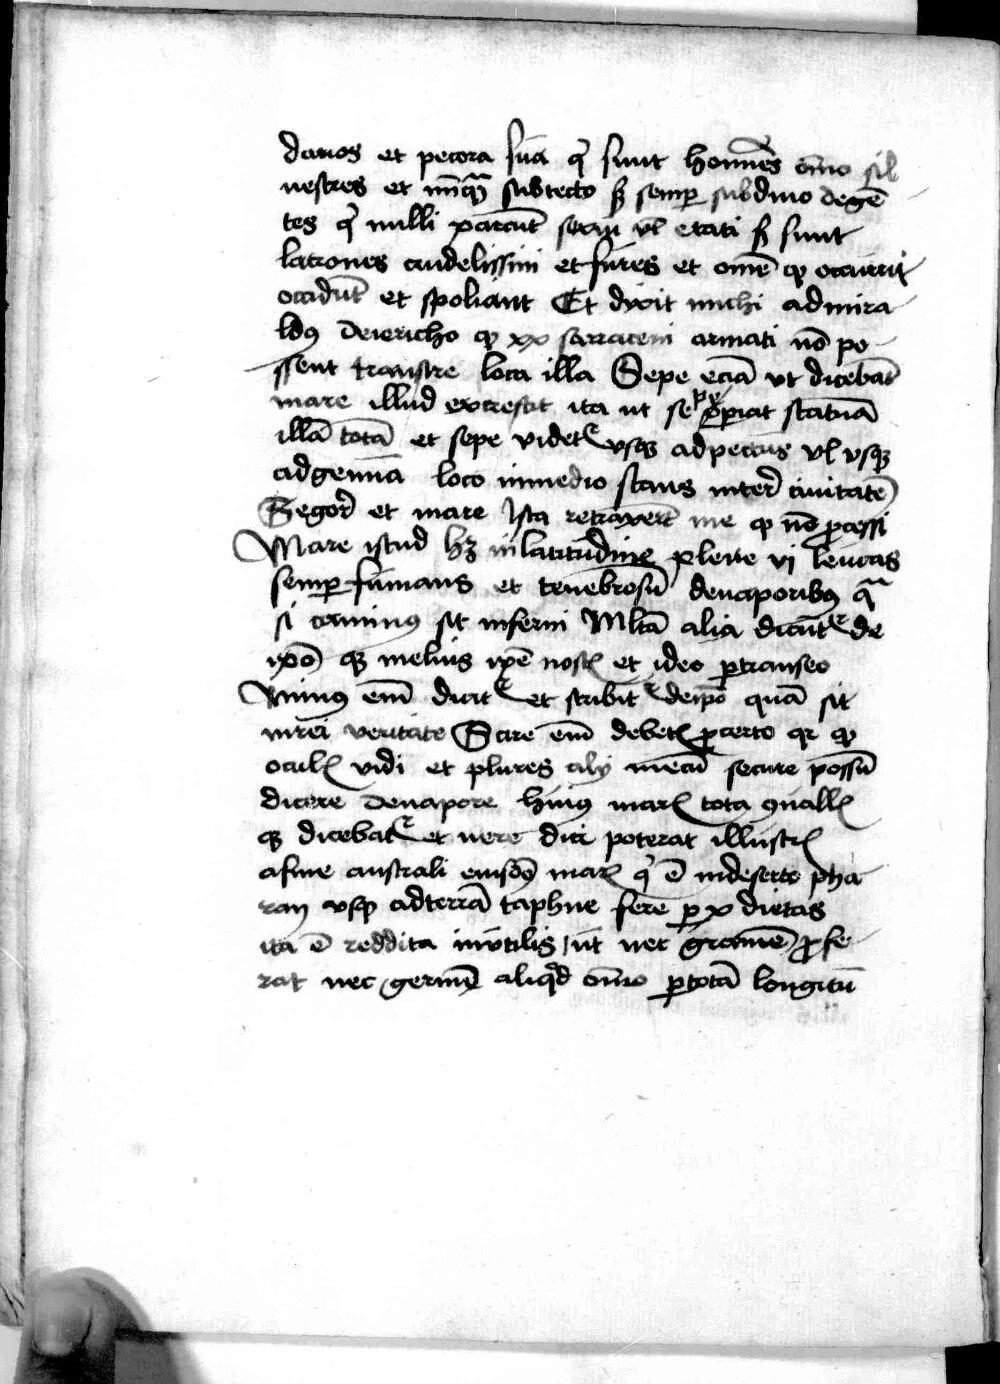 danos et pecora sua q̇ sunt homīes om̄io sil
uestres et nūq̄ subtecto sꝫ semp̱ subdiuo degē
tes q̇ nulli parcūt sexui vl̄ etati sꝫ sunt
latrones crudelissimi et fures et om̄ē qͥ occurrit
occidūt et spoliant Et dixit michi admira
ldꝰ deiericho qͩ xx sarraceni armati nō po
ssent transire loca illa Sepe eciā vt dicebāt
mare illud excrescit ita ut sepe op̱iat statuā
illā totā et sepe videt᷑ vsqꝫ adpectus vl̄ vsqꝫ
adgenua loco inmedio stans inter ciuitatē
Segor et mare Ista retraxerūt me qͩ nō ꝓcessi
Mare istud hꝫ inlatitudine plene vj leucas
semp̱ fumans et tenebrosū deuaporibꝰ q̄
si caminꝰ sit inferni Ml̄ta alia dicūt᷑ de
ip̄o qꝫ melius ip̄e nosc̄ et ideo p̱transeo
Minus eñi dicit᷑ et scribit᷑ deip̄o quā sit
inrei veritate Scire eñi debetꝭ ꝓcerto qr qͩ
oculꝭ vidi et plures alij mecū secure possū
dicere deuapore huiꝰ marꝭ tota ꝯuallꝭ
qꝫ dicebat᷑ et uere dici poterat illustrꝭ
afine australi eiusdē marꝭ q̇ ē indeserto pha
ran vsqꝫ adterrā taphne fere p̱ v dietas
ita ē reddita inutilis ut nec gramē ꝓfe
rat nec germē aliqͩd om̄io p̱totā longitū